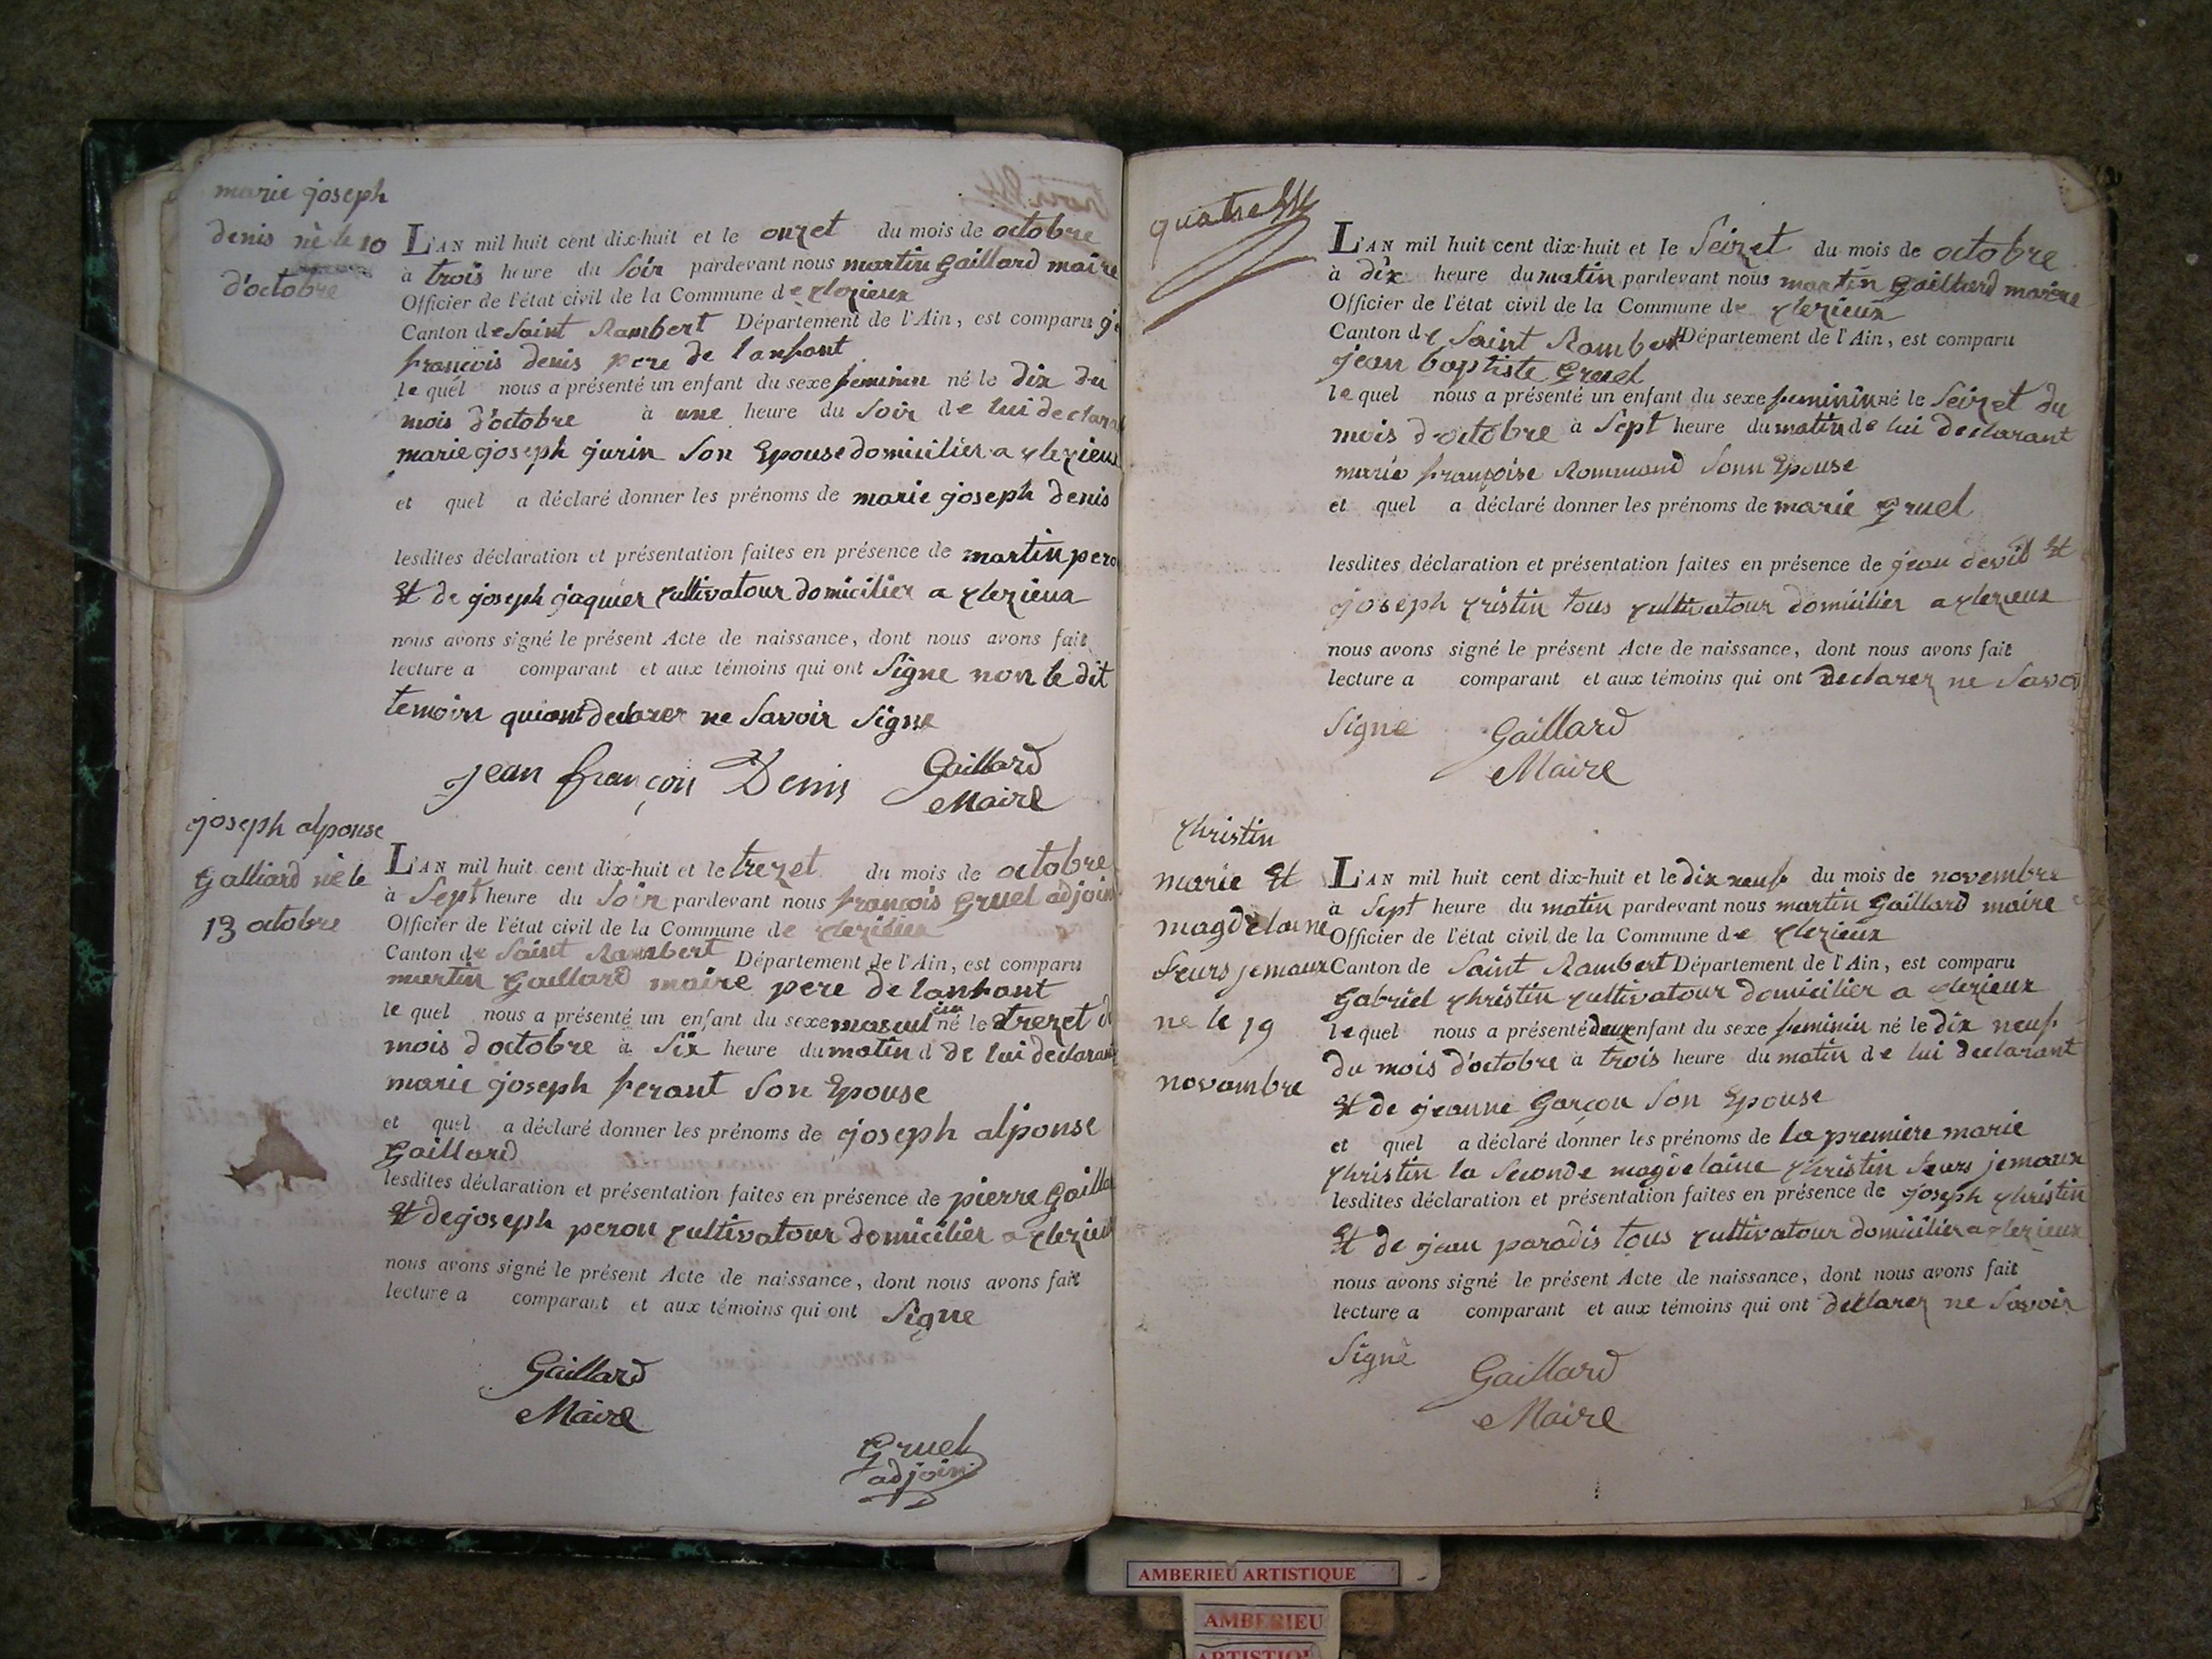 marie joseph
denis né le 10
d'octobre
L'AN mil huit cent dix-huit et le onzet du mois de octobre
à trois heure du Soir pardevant nous martin Gaillard maire
Officier de l'état civil de la Commune de Clezieux
Canton de Saint Rambert Département de l'Ain, est comparu
francois denis pere de lanfant
le quel nous a présenté un enfant du sexe feminin né le dix du
mois d'octobre à une heure du Soir de lui declarant
marie joseph jurin Son Epouse domiciliés a Clezieux
et quel a déclaré donner les prénoms de marie joseph denis
lesdites déclaration et présentation faites en présence de martin
Et de joseph jaquier Cultivatour domicilier a Clezieux
nous avons signé le présent Acte de naissance, dont nous avons fait
lecture a comparant et aux témoins qui ont Signe non le dit
temoin qui ont declarer ne Savoir Signe
jean françois Denis Gaillard
Maire
joseph alponse
Galliard né le
13 octobre
L'AN mil huit cent dix-huit et le trezet du mois de octobre
à Sept heure du Soir pardevant nous francois Gruel adjoin
Officier de l'état civil de la Commune de Clezieux
Canton de Saint Rambert Département de l'Ain, est comparu
martin Gaillard maire pere de lanfant
le quel nous a présenté un enfant du sexe masculin né le trezet d
mois d octobre à Six heure du matin d de lui declarant
marie joseph ferant Son Epouse
et quel a déclaré donner les prénoms de joseph alponse
Gaillard
lesdites déclaration et présentation faites en présence de pierre Gailla
Et de joseph peron Cultivatour domicilier a Clezieux
nous avons signé le présent Acte de naissance, dont nous avons fait
lecture a comparant et aux témoins qui ont Signe
Gaillard
Maire
Gruel
adjoin
quatre
L'AN mil huit cent dix-huit et le Seizet du mois de octobre
à dix heure du matin pardevant nous martin Gaillard maire
Officier de l'état civil de la Commune de Clezieux
Canton de Saint Rambert Département de l'Ain, est comparu
jean baptiste Gruel
le quel nous a présenté un enfant du sexe feminin né le Seizet du
mois d octobre à Sept heure du matin de lui declarant
marie françoise Rommand Sonn Epouse
et quel a déclaré donner les prénoms de marie Gruel
lesdites déclaration et présentation faites en présence de jean devil Et
joseph Cristin tous Cultivatour domicilier a Clezieux
nous avons signé le présent Acte de naissance, dont nous avons fait
lecture a comparant et aux témoins qui ont declarez ne Savoi
Signe Gaillard
Maire
Christin
marie Et
magdelaine
Seurs jemaux
ne le 19
novambre
L'AN mil huit cent dix-huit et le dix neuf du mois de novembre
à Sept heure du matin pardevant nous martin Gaillard maire
Officier de l'état civil de la Commune de Clezieux
Canton de Saint Rambert Département de l'Ain, est comparu
Gabriel Christin Cultivatour domicilier a Clezieux
le quel nous a présenté deux enfant du sexe feminin né le dix neuf
du mois d'octobre à trois heure du matin de lui declarant
Et de jeanne Garçon Son Epouse
et quel a déclaré donner les prénoms de la premiere marie
Christin la Seconde magdelaine Christin Seurs jemaux
lesdites déclaration et présentation faites en présence de joseph Christin
Et de jean paradis tous Cultivatour domicilier a Clezieux
nous avons signé le présent Acte de naissance, dont nous avons fait
lecture a comparant et aux témoins qui ont declarez ne Savoir
Signé Gaillard
Maire
AMBERIEU ARTISTIQUE
AMBERIEU
ARTISTIQUE